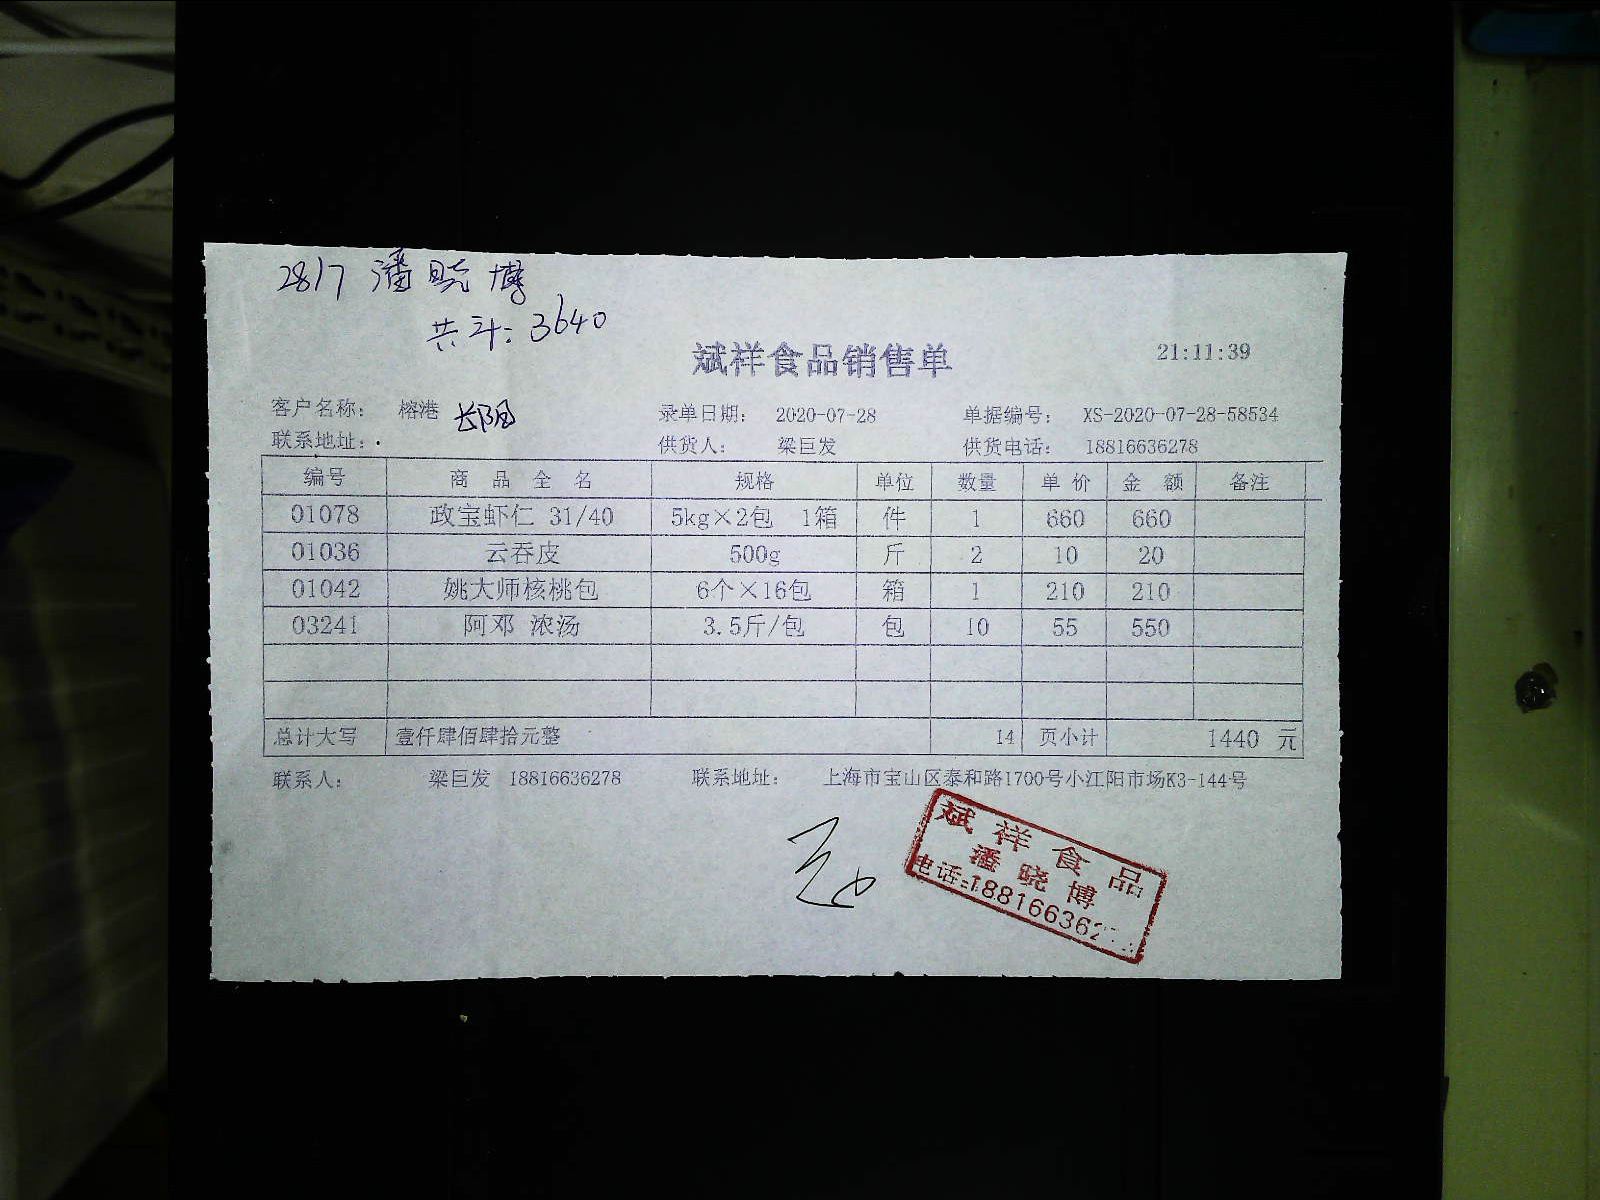 28/7 潘晓博
共斗: 3640
斌祥食品销售单 21:11:39
客户名称: 榕港 长阳 录单日期: 2020-07-28 单据编号: XS-2020-07-28-58534
联系地址: . 供货人: 梁巨发 供货电话: 18816636278
编号 商 品 全 名 规格 单位 数量 单 价 金 额 备注
01078 政宝虾仁 31/40 5kg×2包 1箱 件 1 660 660
01036 云吞皮 500g 斤 2 10 20
01042 姚大师核桃包 6个×16包 箱 1 210 210
03241 阿邓 浓汤 3.5斤/包 包 10 55 550
总计大写 壹仟肆佰肆拾元整 14 页小计 1440 元
联系人: 梁巨发 18816636278 联系地址: 上海市宝山区泰和路1700号小江阳市场K3-144号
斌祥食品
潘晓博
电话:188166362